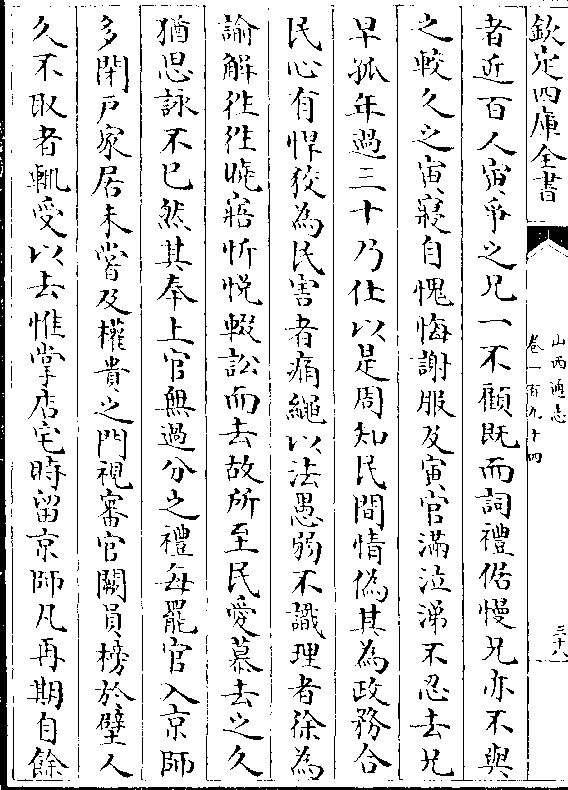 欽定四庫全書
山西通志
卷一百九十四
三十八
者近百人寅爭之兄一不顧既而詞禮倨慢兄亦不與
之較久之寅寢自愧悔謝服及寅官滿泣涕不忍去兄
早孤年過三十乃仕以是周知民間情偽其為政務合
民心有悍狡為民害者痛繩以法愚弱不識理者徐為
諭解往往曉寤忻悦輟訟而去故所至民愛慕去之久
猶思詠不已然其奉上官無過分之禮每罷官入京師
多閉戸家居未嘗及權貴之門視審官闕員榜於壁人
久不取者輒受以去惟掌店宅時留京師凡再期自餘